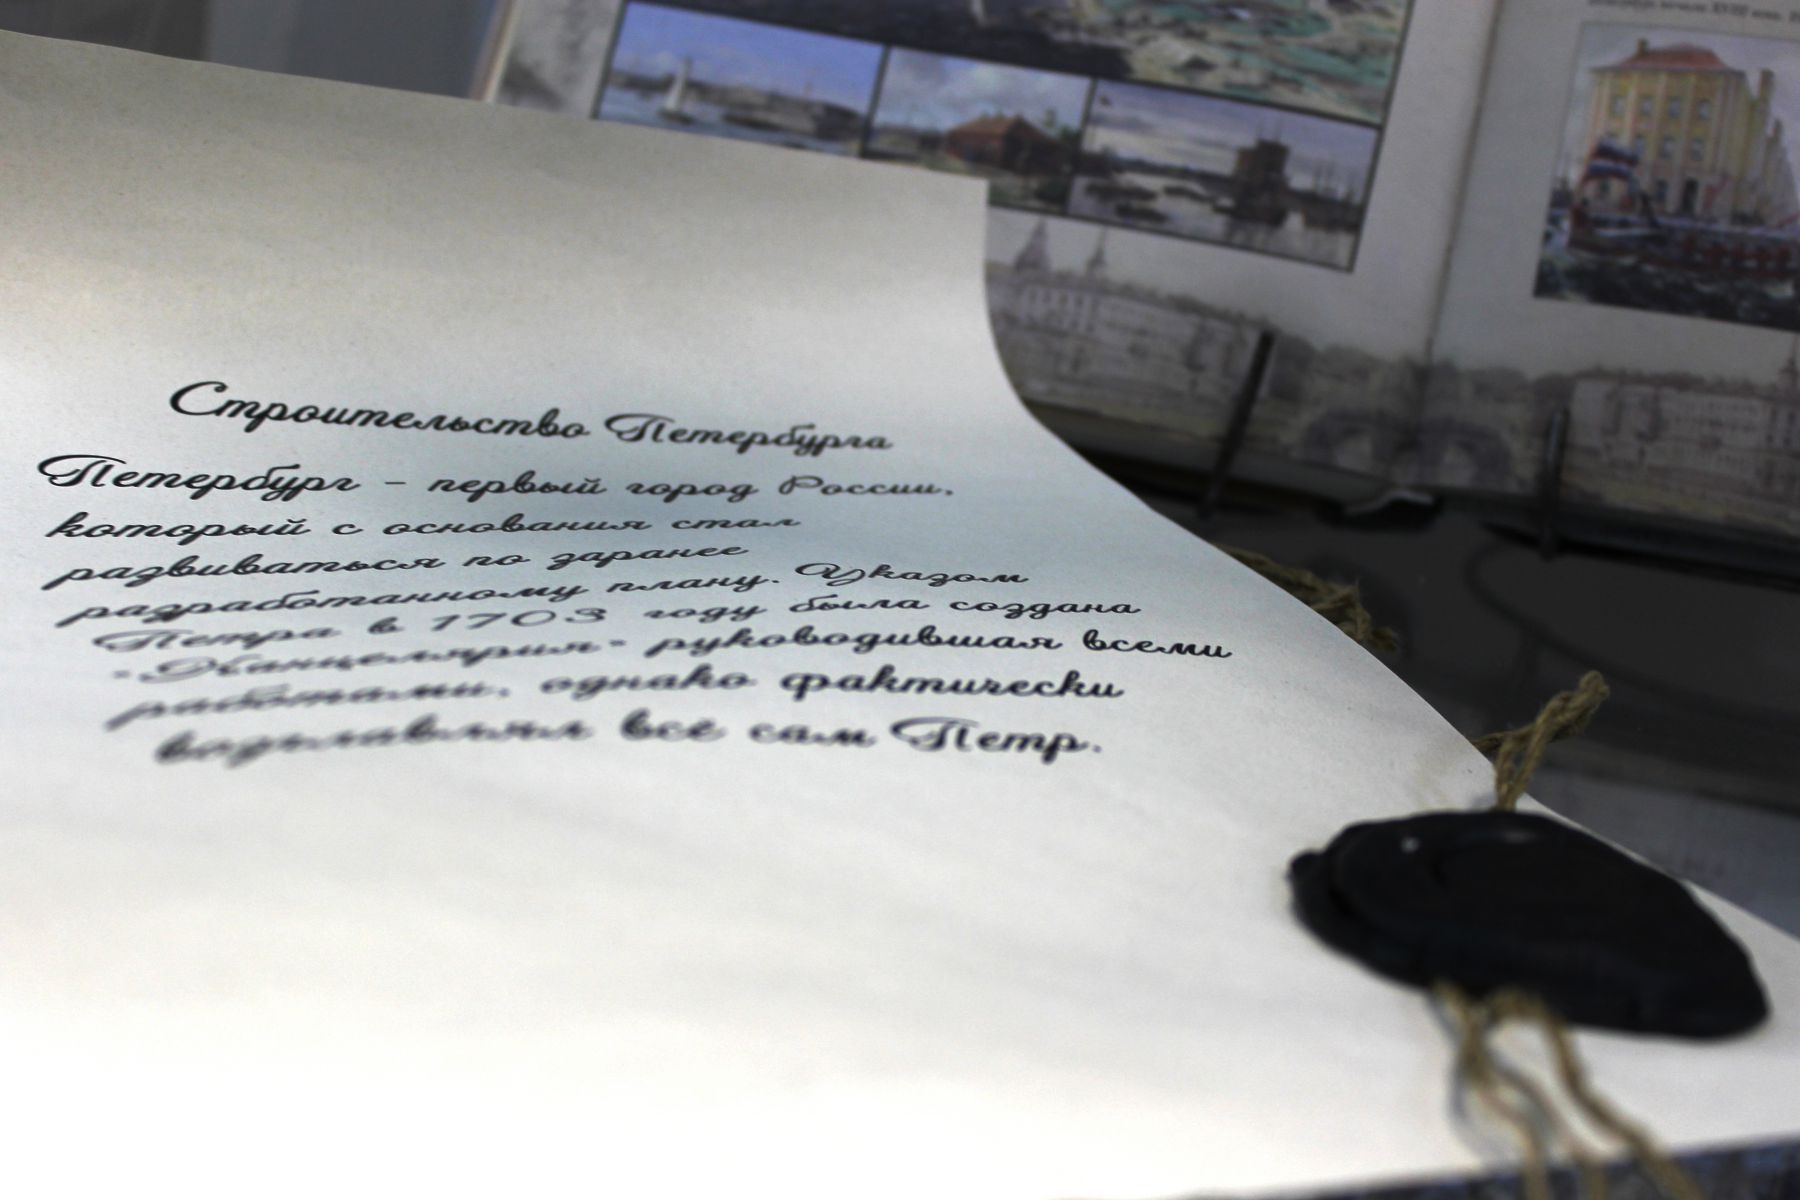 Строительство Петербурга
Петербург - первый город России,
который с основания стал
развиваться по заранее
разработанному плану. Указом
Петра в 1703 году была создана
"Канцелярия" руководившая всеми
работами, однако фактически
возглавлял всё сам Петр.